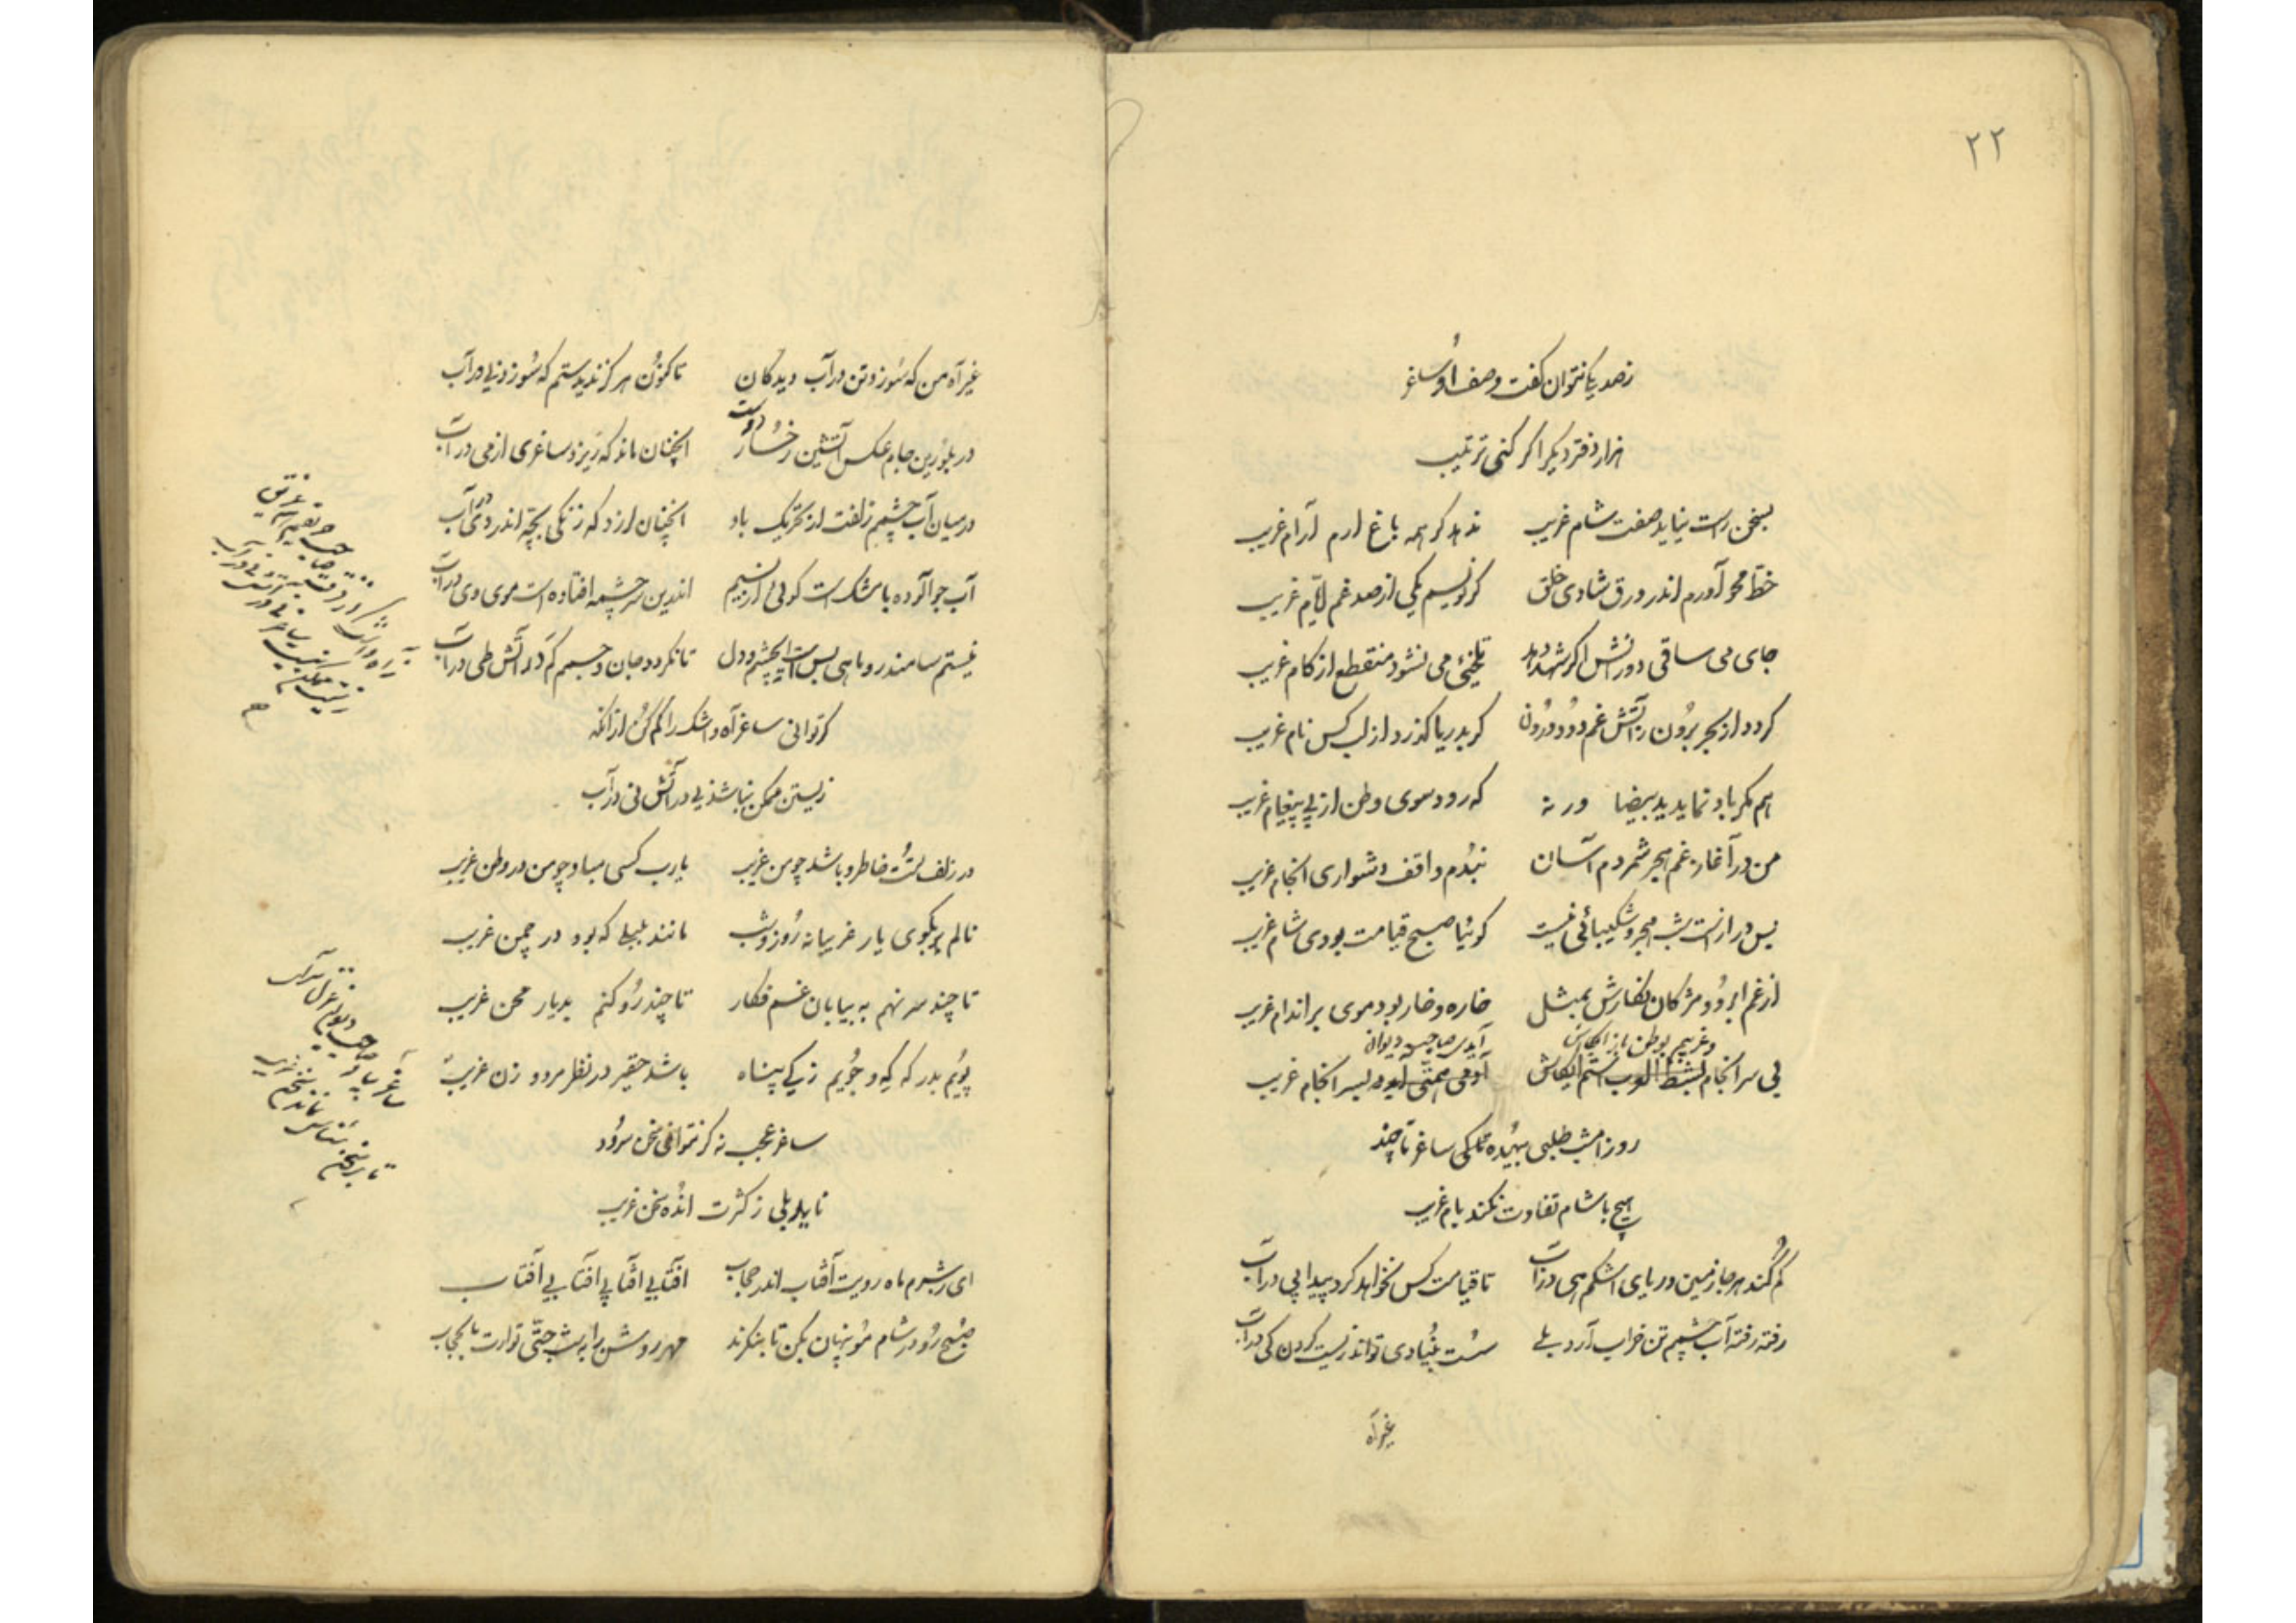 ۲۲
ز صد یک نتوان گفت وصف او ساغر
هزار دفتر دیگر اگر کنی ترتیب
بسخن راست نیاید صفت شام غریب
ندهد گر همه باغ ارم آرام غریب
خط محو آورم اندر ورق شادی خلق
گر نویسم یکی از صد غم ایام غریب
جای می ساقی دورانش اگر شهد دهد
تلخیٔ می نشود منقطع از کام غریب
گردد از بحر برون ز آتش غم دود درون
گر بدریا گذرد از لب کس نام غریب
هم مگر باد نماید ید بیضا ورنه
که رود سوی وطن از پی پیغام غریب
من در آغاز غم هجر شمردم آسان
نبدم واقف دشواری انجام غریب
بس درازست شب هجر و شکیبائی نیست
گوئیا صبح قیامت بودی شام غریب
از غم ابرو و مژگان نگارش بمثل
خاره و خار بود موی بر اندام غریب
بی سر انجام
سر انجام غریب
روز امشب طلبی بیهده ساغر تا چند
هیچ با شام تفاوت نکند بام غریب
گم کند هر جا زمین دریای اشکم پی در آب
تا قیامت کس نخواهد کرد پیدا پی در آب
رفته رفته آب چشمم تن خراب آرد بلی
سست بنیادی تواند زیست کردن کی در آب
غیر آه
غیر آه من که سوزد تن در آب دیدگان
تا کنون هرگز ندیدستم که سوزد نی در آب
در بلورین جام عکس آتشین رخسار دوست
آنچنان ماند که ریزد ساغری از می در آب
در میان آب چشمم زلفت از تحریک باد
آنچنان لرزد که زنگی بچه اندر دی در آب
آب جو آلوده با مشک است گوئی از نسیم
اندرین سر چشمه افتاده است موی وی در آب
نیستم سامندر و ماهی بس است ای چشم و دل
تا نگردد جان و جسمم گم در آتش طی در آب
گر توانی ساغر آه و اشک را کم کن از آنکه
زیستن ممکن نباشد نی در آتش نی در آب
در زلف تست خاطر و باشد چو من غریب
یا رب کسی مباد چو من در وطن غریب
نالم بکوی یار غریبانه روز و شب
مانند بلبلی که بود در چمن غریب
تا چند سر نهم به بیابان غم فکار
تا چند رو کنم بدیار محن غریب
پویم بدر که که و جویم ز کی پناه
باشد حقیر در نظر مرد و زن غریب
ساغر عجب نه گر نتوانی سخن سرود
ناید بلی ز کثرت انده سخن غریب
ای ز شرم ماه رویت آفتاب اندر حجاب
آفتابی آفتابی آفتابی آفتاب
صبح رو در شام مو پنهان مکن تا بنگرند
مهر روشن را به شب حتی توارت بالحجاب